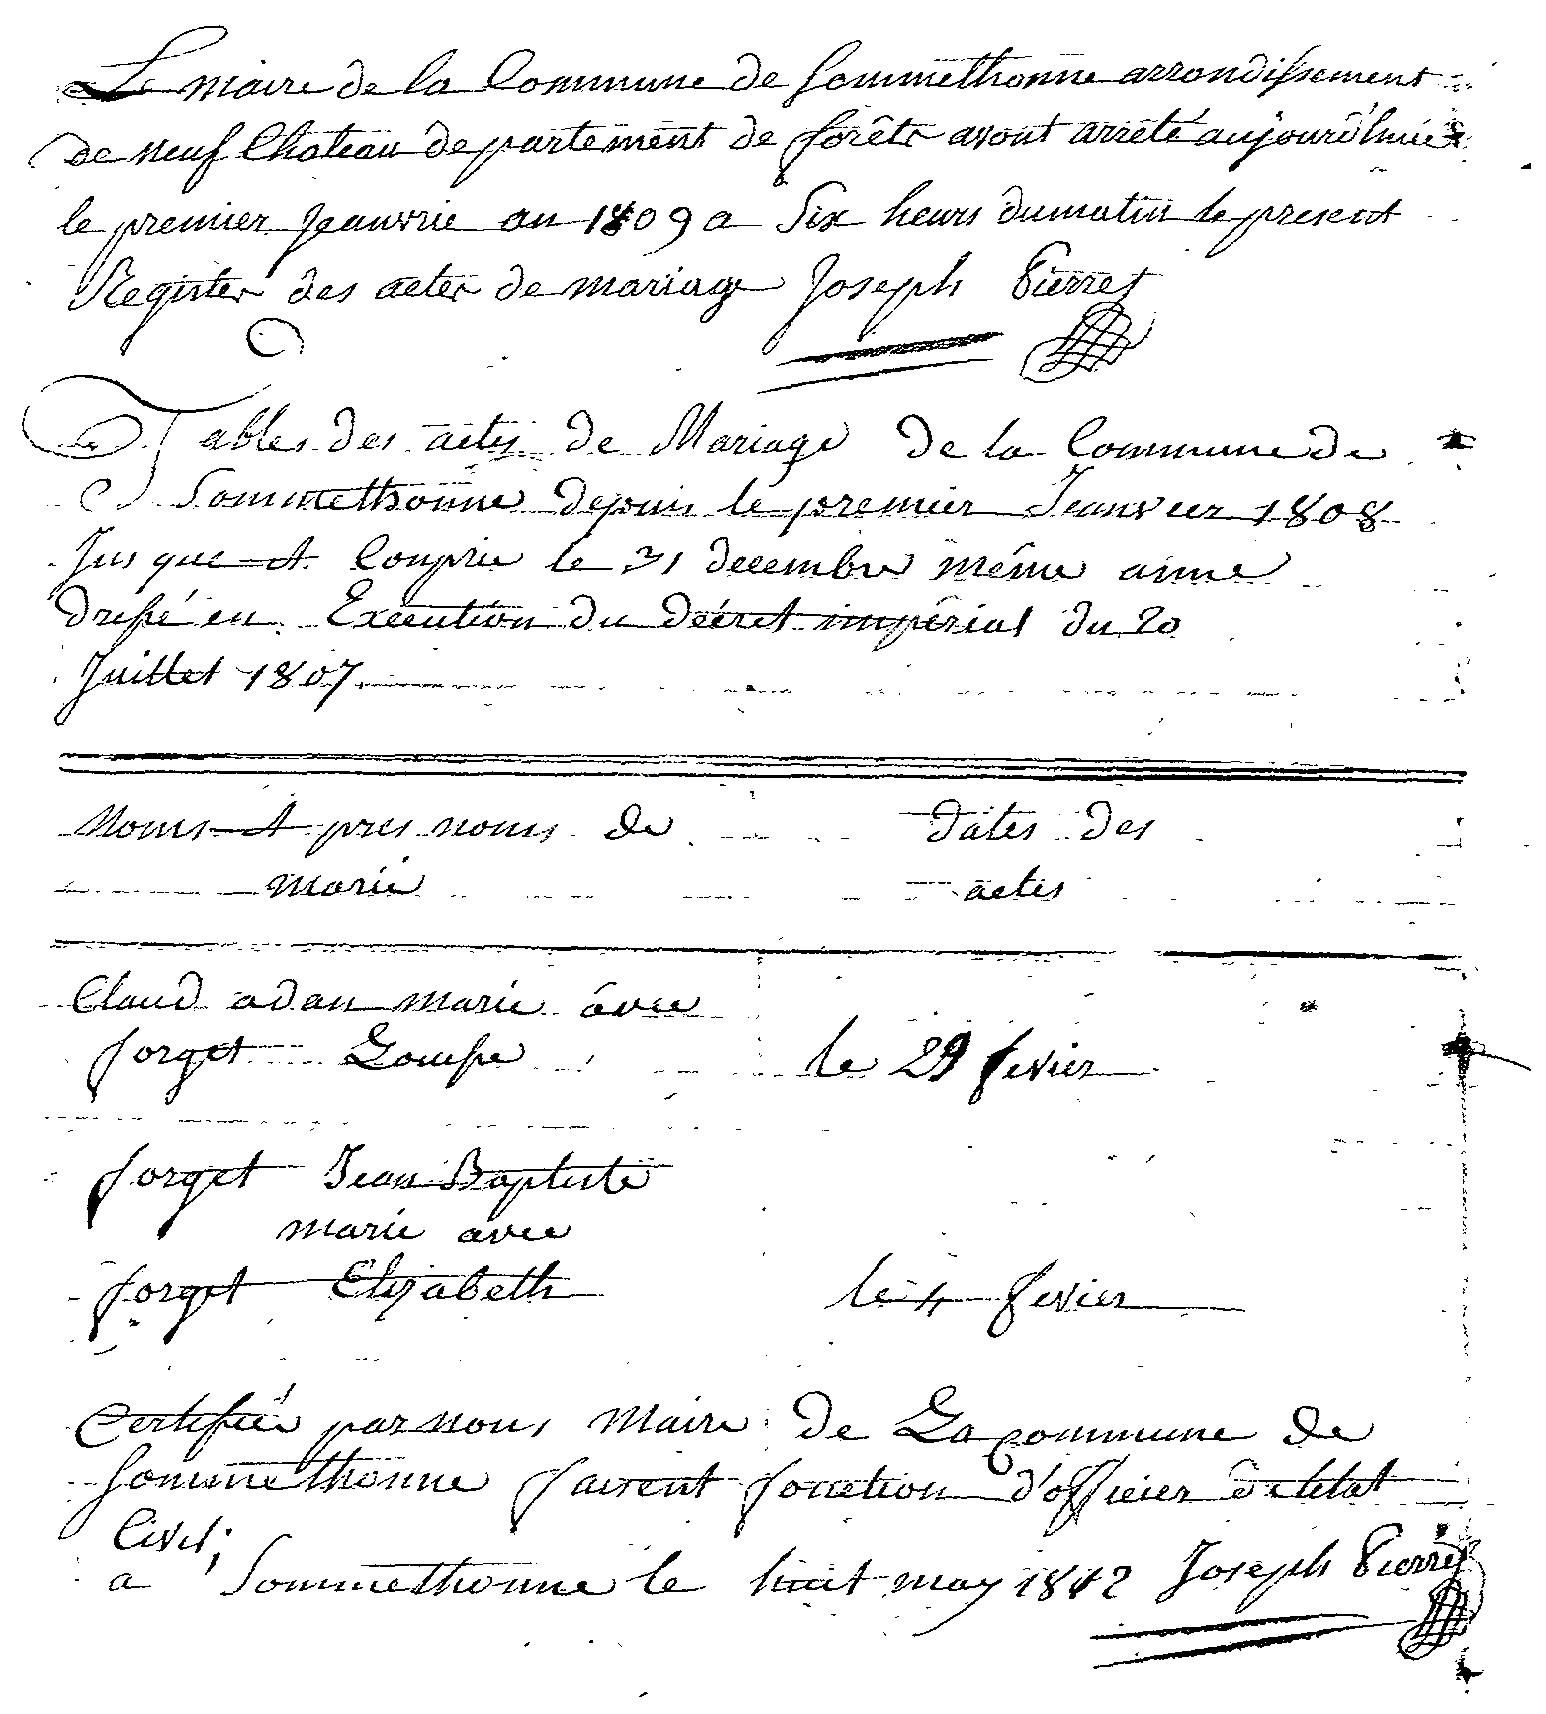 Le maire de la Commune de Sommethonne arrondissement
de neuf Chateau departement de forêts avont arrêté aujourd'huie
le premier Jeanvrie an 1809 a Six heurs dumatin le present
Register des actes de mariage Joseph Pierret
Tables des actes de Mariage de la Commune de
Sommethonne depuis le premier Jeanvier 1808
Jusque et Comprie le 31 decembre même anne
dressé en Execution du décret impérial du 20
Juillet 1807
Noms et prenoms de dates des
marié actes
Claud adan marie avec
forget Louise le 29 fevier
forget Jean Baptiste
marie avec
forget Elizabeth le 4 fevier
Certifié par nous Maire de La commune de
Sommethonne faisent fonction d'officier d etétat
Civil;
a Sommethonne le huit may 1812 Joseph Pierret